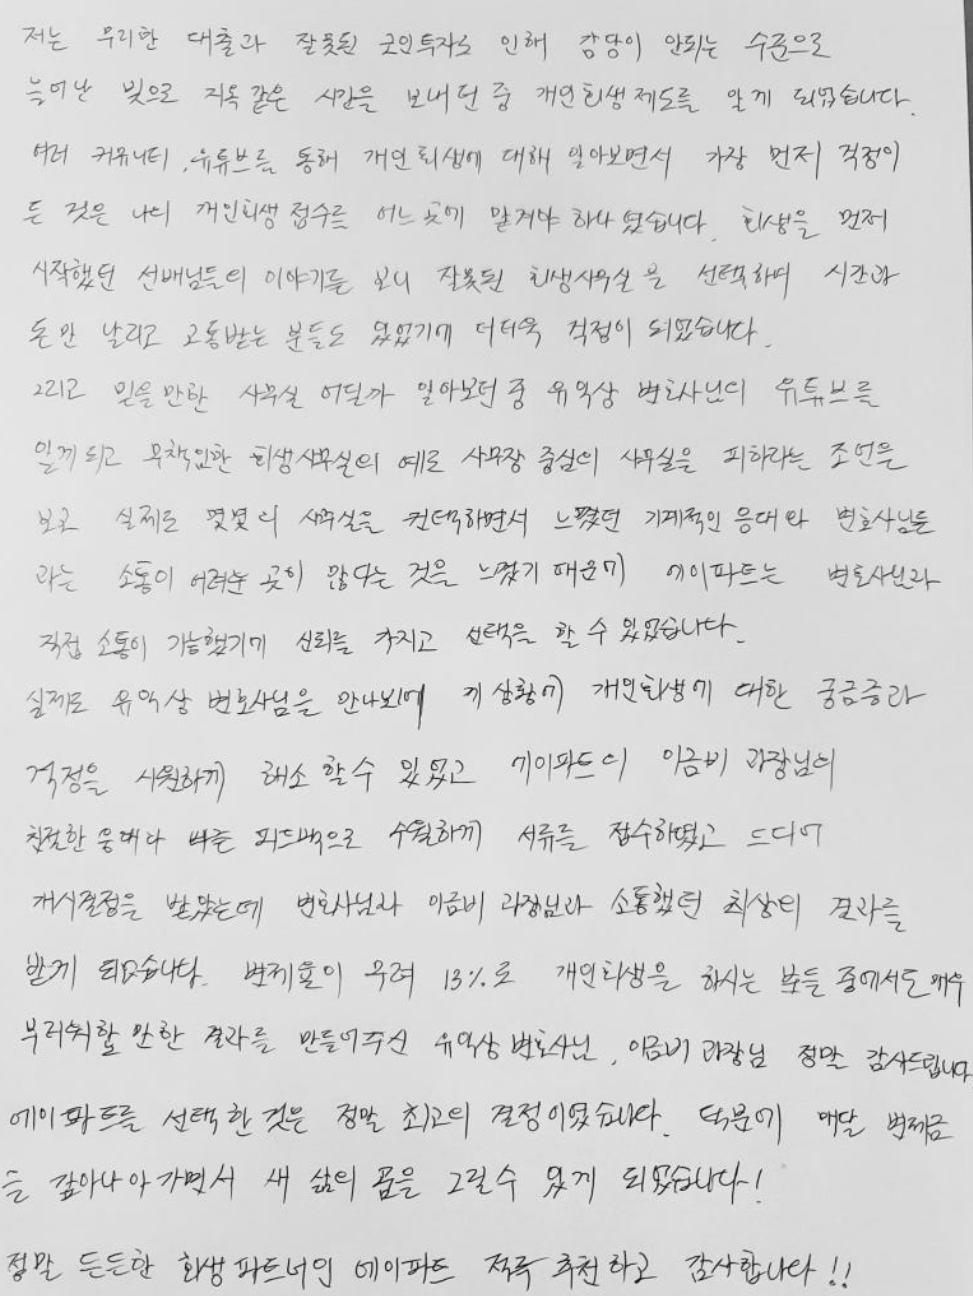 저는 무리한 대출과 잘못된 코인투자로 인해 감당이 안되는 수준으로
늘어난 빚으로 지옥같은 시간을 보내던 중 개인회생제도를 알게 되었습니다.
여러 커뮤니티, 유튜브를 통해 개인회생에 대해 알아보면서 가장 먼저 걱정이
든 것은 나의 개인회생 접수를 어느 곳에 맡겨야 하나 였습니다. 회생을 먼저
시작했던 선배님들의 이야기를 보니 잘못된 회생사무실을 선택하여 시간과
돈만 날리고 고통받는 분들도 있었기에 더더욱 걱정이 되었습니다.
그리고 믿을만한 사무실 어딜까 알아보던 중 유익상 변호사님의 유튜브를
알게되고 무책임한 회생사무실의 예로 사무장 중심의 사무실을 피하라는 조언을
보고 실제로 몇몇의 사무실을 컨택하면서 느꼈던 기계적인 응대와 변호사님들
과는 소통이 어려운 곳이 많다는 것을 느꼈기 때문에 에이파트는 변호사님과
직접 소통이 가능했기에 신뢰를 가지고 선택을 할 수 있었습니다.
실제로 유익상 변호사님을 만나뵈니 제 상황에 개인회생에 대한 궁금증과
걱정을 시원하게 해소 할 수 있었고 에이파트의 이금비 과장님의
친절한 응대와 빠른 피드백으로 수월하게 서류를 접수하였고 드디어
개시결정을 받았는데 변호사님과 이금비 과장님과 소통했던 최상의 결과를
받게 되었습니다. 변제율이 무려 13%로 개인회생을 하시는 분들 중에서도 매우
부러워할 만한 결과를 만들어주신 유익상 변호사님, 이금비 과장님 정말 감사드립니다
에이파트를 선택한 것은 정말 최고의 결정이였습니다. 덕분에 매달 변제금
을 갚아나아가면서 새 삶의 꿈을 그릴 수 있게 되었습니다!
정말 든든한 회생파트너인 에이파트 적극 추천하고 감사합니다!!